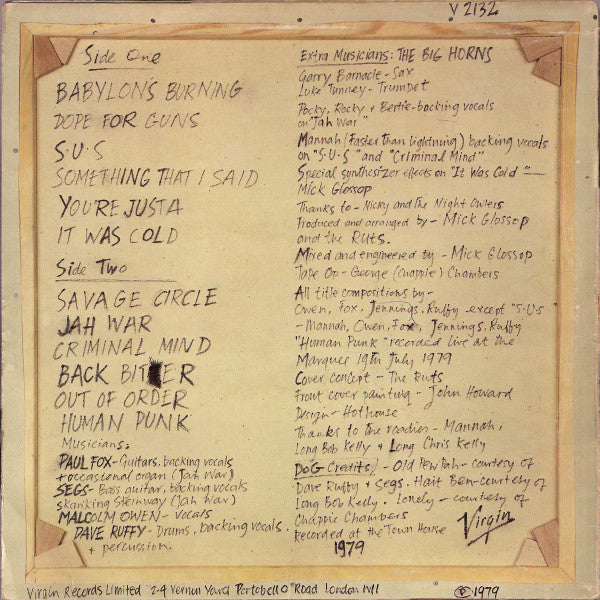 V 2132
Side One
BABYLON'S BURNING
DOPE FOR GUNS
S·U·S
SOMETHING THAT I SAID
YOU'RE JUST A
IT WAS COLD
Side Two
SAVAGE CIRCLE
JAH WAR
CRIMINAL MIND
BACK BITER
OUT OF ORDER
HUMAN PUNK
Musicians:
PAUL FOX - Guitars, backing vocals
+ occasional organ (Jah War)
SEGS - Bass guitar, backing vocals
skanking Steinway (Jah War)
MALCOLM OWEN - vocals
DAVE RUFFY - Drums, backing vocals
+ percussion.
Extra Musicians: THE BIG HORNS
Garry Barnacle - Sax
Luke Tunney - Trumpet
Pocky, Rocky + Bertie - backing vocals
on "Jah War"
Mannah (Faster than lightning) backing vocals
on "S·U·S" and "Criminal Mind"
Special synthesizer effects on "It Was Cold" -
Mick Glossop
Thanks to - Nicky and the Night Owlers
Produced and arranged by - Mick Glossop
and the Ruts.
Mixed and engineered by - Mick Glossop
Tape Op - George (Chappie) Chambers
All title compositions by -
Owen, Fox, Jennings, Ruffy except "S·U·S
- Mannah, Owen, Fox, Jennings, Ruffy
"Human Punk" recorded live at the
Marquee 19th July 1979
Cover concept - The Ruts
Front cover painting - John Howard
Design - Hothouse
Thanks to the roadies - Mannah,
Long Bob Kelly + Long Chris Kelly
DoG Credits/ - Old Pewtah - courtesy of
Dave Ruffy + Segs. Hait Ben - courtesy of
Long Bob Kelly, Lonely - courtesy of
Chappie Chambers
Recorded at the Town House
1979
Virgin
Virgin Records Limited 2-4 Vernon Yard Portobello Road London W11
℗ 1979